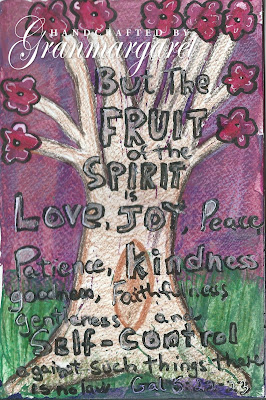 HANDCRAFTED BY
Granmargaret
But The
FRUIT
of the
SPIRIT
is
Love, JOY, Peace,
Patience, kindness
goodness, Faithfulness
gentleness and
SELF-CONTROL
against such things there
is no law. Gal 5:22-23